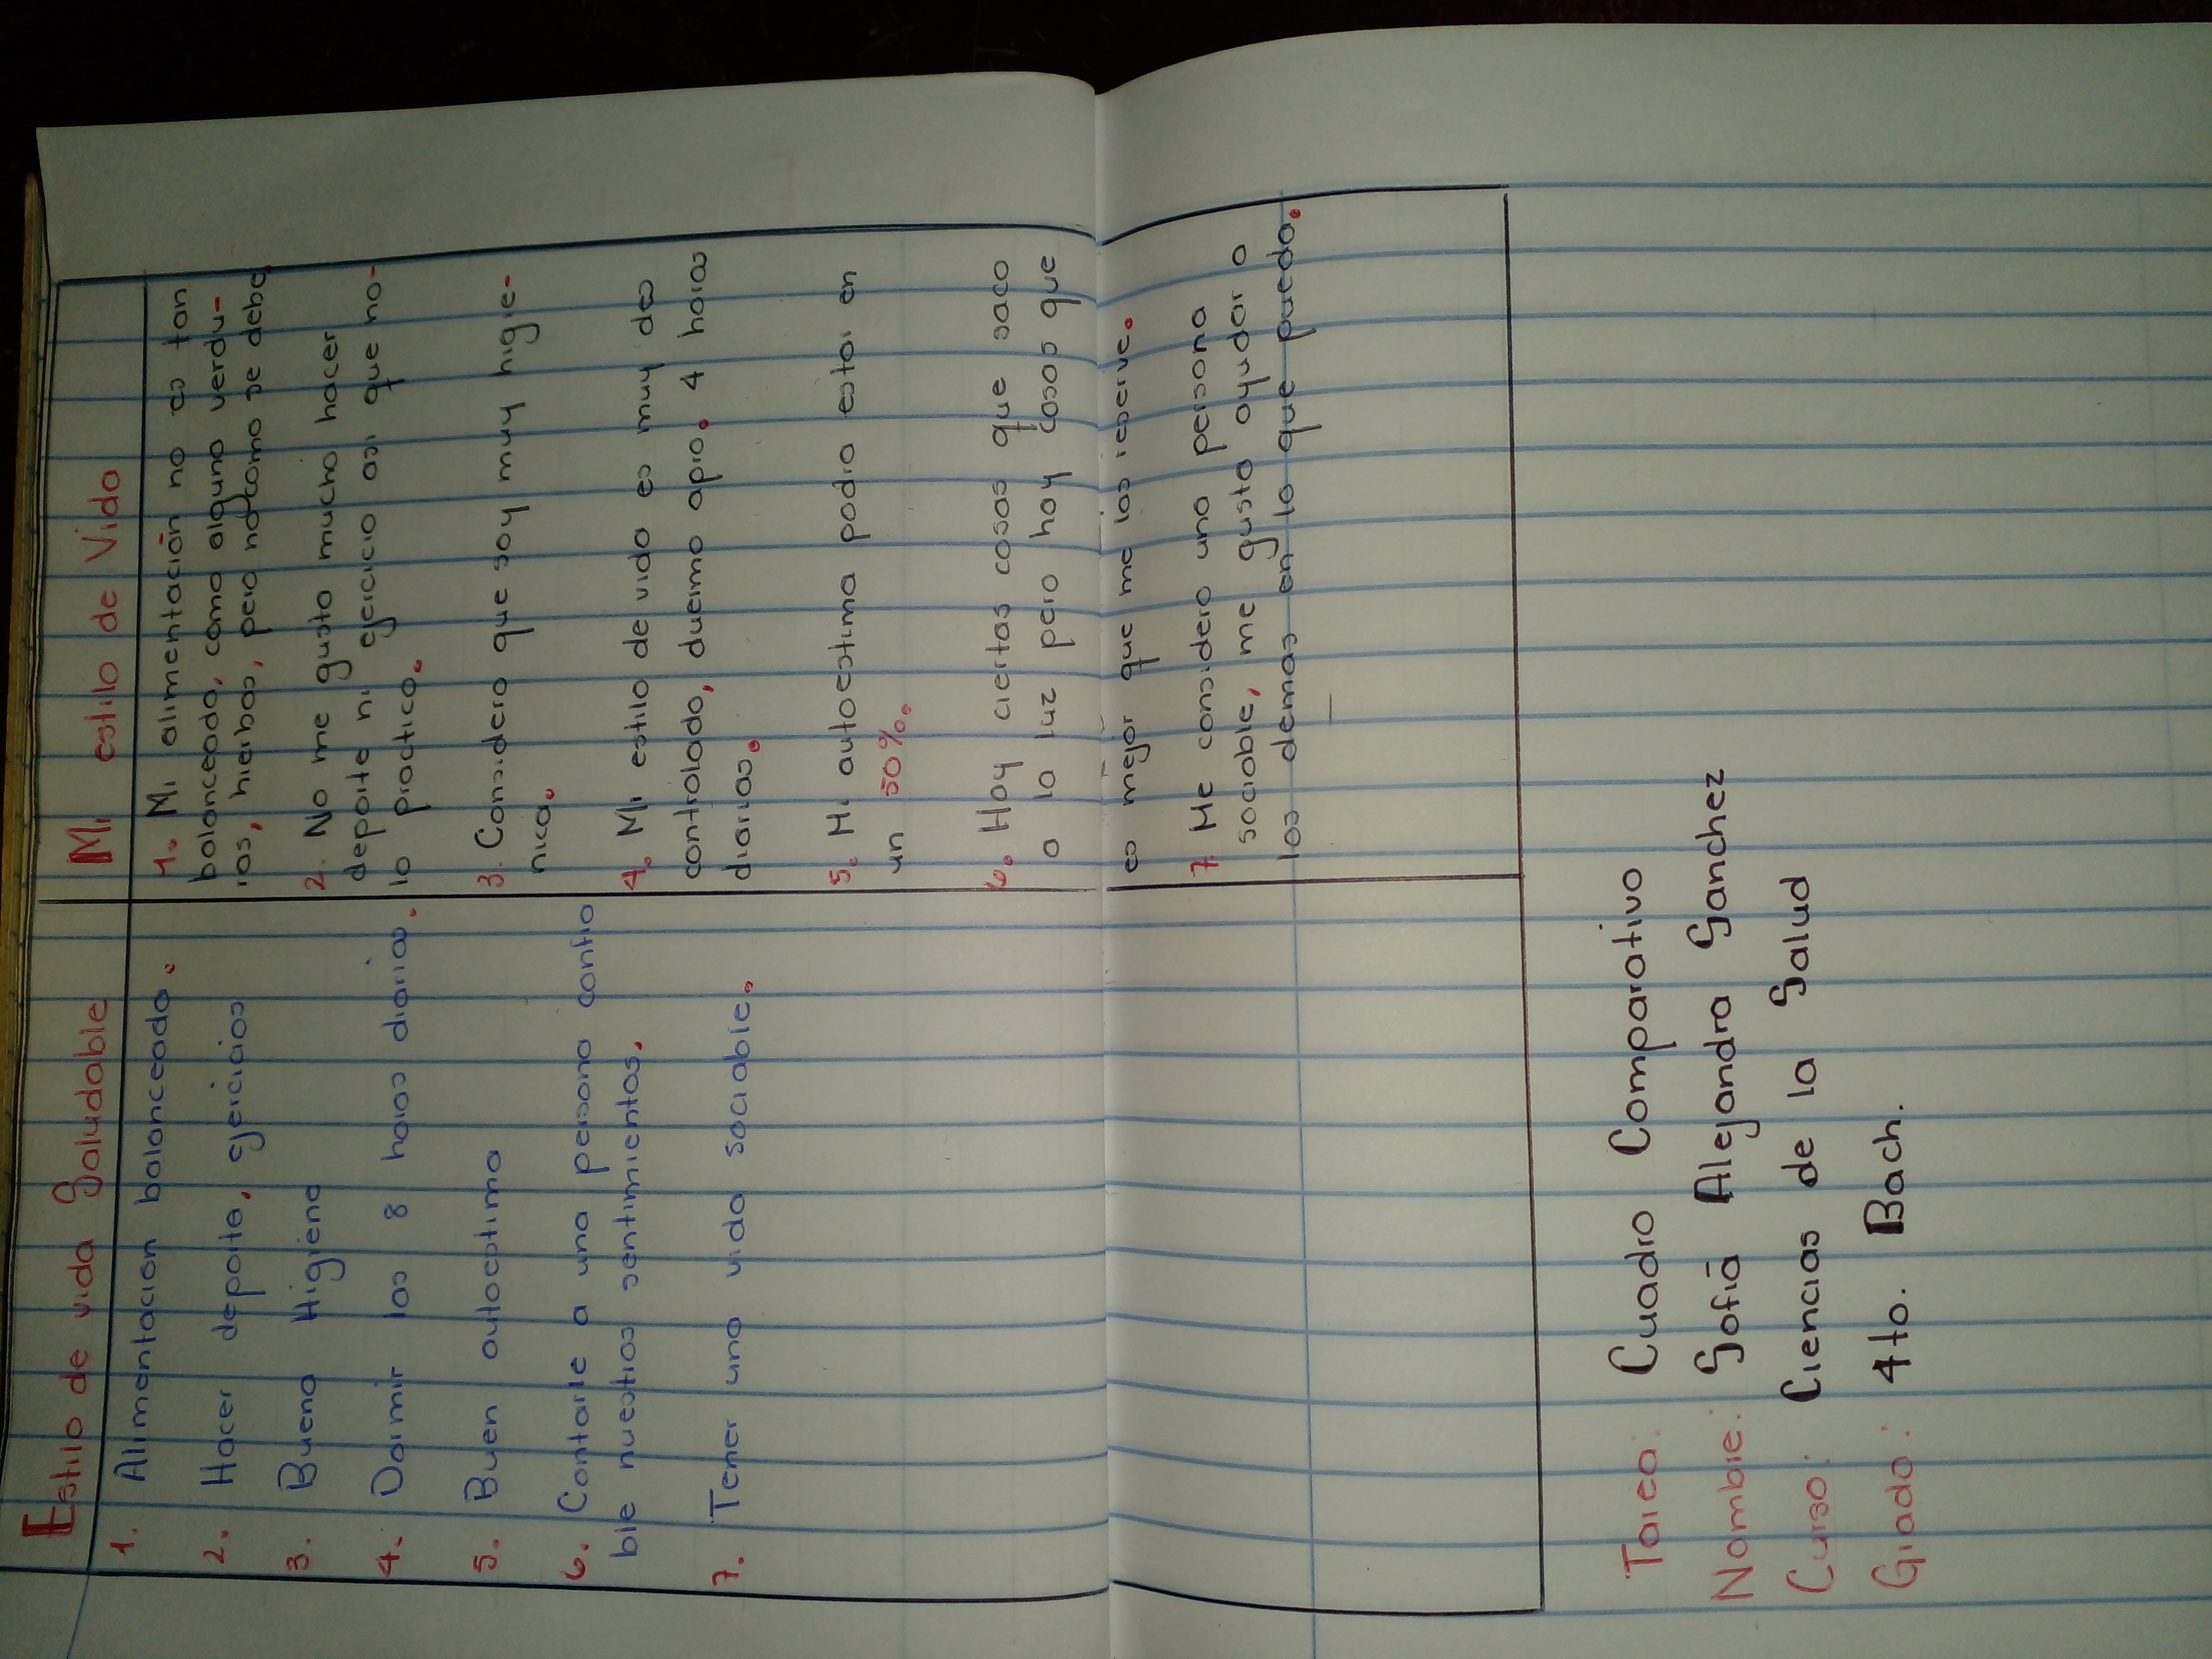 Estilo de vida Saludable
1. Alimentacion balanceada.
2. Hacer deporte, ejercicios
3. Buena Higiene
4. Dormir las 8 horas diarias.
5. Buen autoestima
6. Contarle a una persona confia
ble nuestros sentimientos.
7. Tener una vida sociable.
Mi estilo de Vida
1. Mi alimentación no es tan
balanceada, como alguna verdu-
ras, hierbas, pero no como se debe
2. No me gusta mucho hacer
deporte ni ejercicio asi que no-
lo practico.
3. Considero que soy muy higie-
nica.
4. Mi estilo de vida es muy des
controlado, duermo apro. 4 horas
diarias.
5. Mi autoestima podria estar en
un 50%.
6. Hay ciertas cosas que saco
a la luz pero hay cosas que
es mejor que me las reserve.
7 Me considero una persona
sociable, me gusta ayudar a
los demas en lo que pueda.
Tarea: Cuadro Comparativo
Nombre: Sofia Alejandra Sanchez
Curso: Ciencias de la Salud
Grado: 4to. Bach.